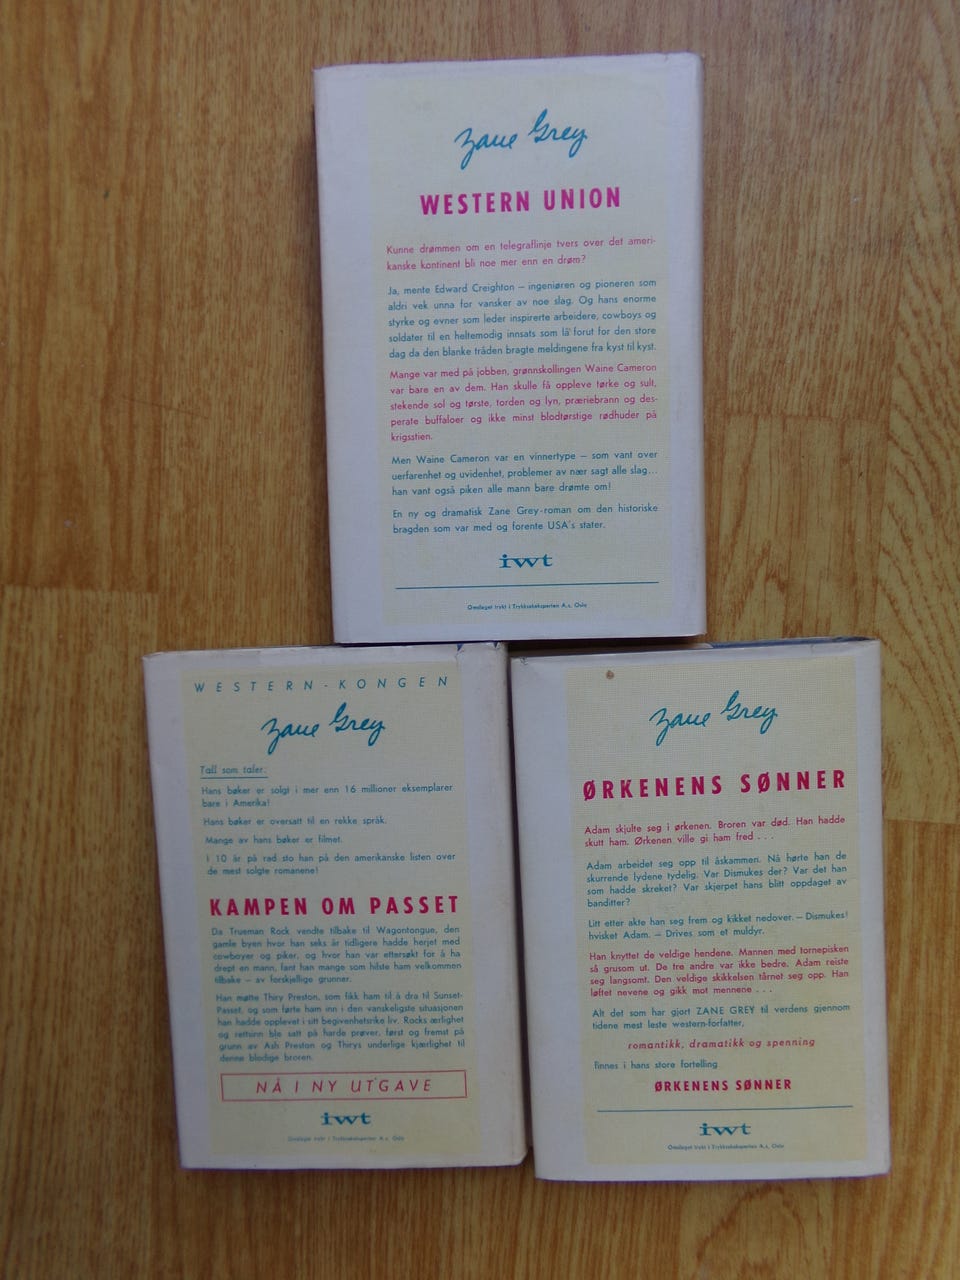 Zane Grey
WESTERN UNION
Kunne drømmen om en telegraflinje tvers over det ameri-
kanske kontinent bli noe mer enn en drøm?
Ja, mente Edward Creighton – ingeniøren og pioneren som
aldri vek unna for vansker av noe slag. Og hans enorme
styrke og evner som leder inspirerte arbeidere, cowboys og
soldater til en heltemodig innsats som lå forut for den store
dag da den blanke tråden bragte meldingene fra kyst til kyst.
Mange var med på jobben, grønnskollingen Waine Cameron
var bare en av dem. Han skulle få oppleve tørke og sult,
stekende sol og tørste, torden og lyn, præriebrann og des-
perate buffaloer og ikke minst blodtørstige rødhuder på
krigsstien.
Men Waine Cameron var en vinnertype – som vant over
uerfarenhet og uvidenhet, problemer av nær sagt alle slag...
han vant også piken alle mann bare drømte om!
En ny og dramatisk Zane Grey-roman om den historiske
bragden som var med og forente USA's stater.
iwt
Omslaget trykt i Trykksakeksperten A.s. Oslo
WESTERN-KONGEN
Zane Grey
Tall som taler:
Hans bøker er solgt i mer enn 16 millioner eksemplarer
bare i Amerika!
Hans bøker er oversatt til en rekke språk.
Mange av hans bøker er filmet.
I 10 år på rad sto han på den amerikanske listen over
de mest solgte romanene!
KAMPEN OM PASSET
Da Trueman Rock vendte tilbake til Wagontongue, den
gamle byen hvor han seks år tidligere hadde herjet med
cowboyer og piker, og hvor han var ettersøkt for å ha
drept en mann, fant han mange som hilste ham velkommen
tilbake – av forskjellige grunner.
Han møtte Thiry Preston, som fikk ham til å dra til Sunset-
Passet, og som førte ham inn i den vanskeligste situasjonen
han hadde opplevet i sitt begivenhetsrike liv. Rocks ærlighet
og rettsinn ble satt på harde prøver, først og fremst på
grunn av Ash Preston og Thirys underlige kjærlighet til
denne blodige broren.
NÅ I NY UTGAVE
iwt
Omslaget trykt i Trykksakeksperten A.s. Oslo
Zane Grey
ØRKENENS SØNNER
Adam skjulte seg i ørkenen. Broren var død. Han hadde
skutt ham. Ørkenen ville gi ham fred . . .
Adam arbeidet seg opp til åskammen. Nå hørte han de
skurrende lydene tydelig. Var Dismukes der? Var det han
som hadde skreket? Var skjerpet hans blitt oppdaget av
banditter?
Litt etter akte han seg frem og kikket nedover. – Dismukes!
hvisket Adam. – Drives som et muldyr.
Han knyttet de veldige hendene. Mannen med tornepisken
så grusom ut. De tre andre var ikke bedre. Adam reiste
seg langsomt. Den veldige skikkelsen tårnet seg opp. Han
løftet nevene og gikk mot mennene . . .
Alt det som har gjort ZANE GREY til verdens gjennom
tidene mest leste western-forfatter,
romantikk, dramatikk og spenning
finnes i hans store fortelling
ØRKENENS SØNNER
iwt
Omslaget trykt i Trykksakeksperten A.s. Oslo